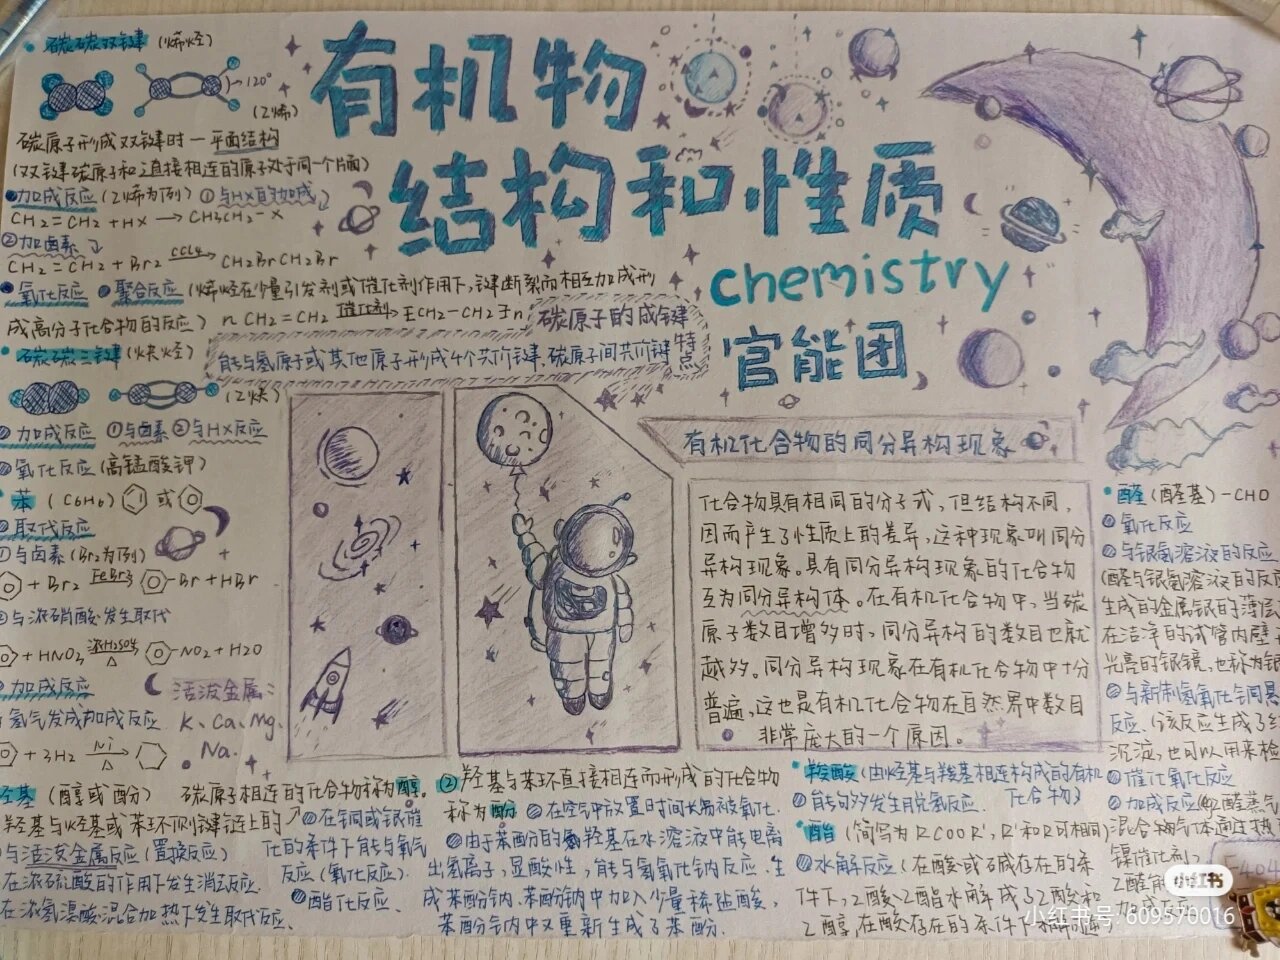 有机物
结构和性质
chemistry
官能团
碳碳双键（烯烃）
120°
（乙烯）
碳原子形成双键时一平面结构
（双键碳原子和之直接相连的原子处于同一个片面）
加成反应（乙烯为例）①与HX的加成
CH2=CH2+HX→CH3CH2-X
②加卤素
CH2=CH2+Br2 CCl4→ CH2BrCH2Br
氧化反应 聚合反应（烯烃在少量引发剂或催化剂作用下，键断裂而相互加成形
成高分子化合物的反应）nCH2=CH2 催化剂→ [CH2-CH2]n
碳原子的成键特点
能与氢原子或其他原子形成4个共价键，碳原子间共价键
碳碳三键（炔烃）
（乙炔）
加成反应 ①与卤素 ②与HX反应
氧化反应（高锰酸钾）
苯（C6H6） 或
取代反应
①与卤素（Br2为例）
+Br2 FeBr3→ -Br+HBr
与浓硝酸发生取代
+HNO3 浓H2SO4→△ -NO2+H2O
加成反应
氢气发成加成反应
+3H2 Ni→△
活泼金属：
K、Ca、Mg、
Na.
有机化合物的同分异构现象
化合物具有相同的分子式，但结构不同，
因而产生了性质上的差异，这种现象叫同分
异构现象。具有同分异构现象的化合物
互为同分异构体。在有机化合物中，当碳
原子数目增多时，同分异构的数目也就
越多。同分异构现象在有机化合物中十分
普遍，这也是有机化合物在自然界中数目
非常庞大的一个原因。
羟基（醇或酚） 碳原子相连的化合物称为醇。
羟基与烃基或苯环侧键链上的
与活泼金属反应（置换反应）
在浓硫酸的作用下发生消去反应.
在浓氢溴酸混合加热下发生取代反应.
在铜或银催
化的条件下能与氧气
反应（氧化反应）.
酯化反应、
②羟基与苯环直接相连而形成的化合物
称为酚 在空气中放置时间长易被氧化.
由于苯酚内的羟基在水溶液中能电离
出氢离子，显酸性，能与氢氧化钠反应.生
成苯酚钠.苯酚钠中加入少量稀盐酸，
苯酚钠内又重新生成了苯酚.
羧酸（由烃基与羧基相连构成的有机
化合物）
能够发生脱氢反应.
酯（简写为RCOOR'，R'和R可相同）
水解反应（在酸或碱存在的条
件下，乙酸乙酯水解成了乙酸和
乙醇，在酸存在的条件下
醛（醛基）-CHO
氧化反应
与银氨溶液的反应
（醛与银氨溶液的反应
生成的金属银的薄层
在洁净的试管内壁
光亮的银镜，也称为银
与新制氢氧化铜悬
反应.（该反应生成了
沉淀，也可以用来检
催化氧化反应
加成反应
混合物气体通过热
镍催化剂，
乙醛
加成反应
小红书
小红书号：609570016